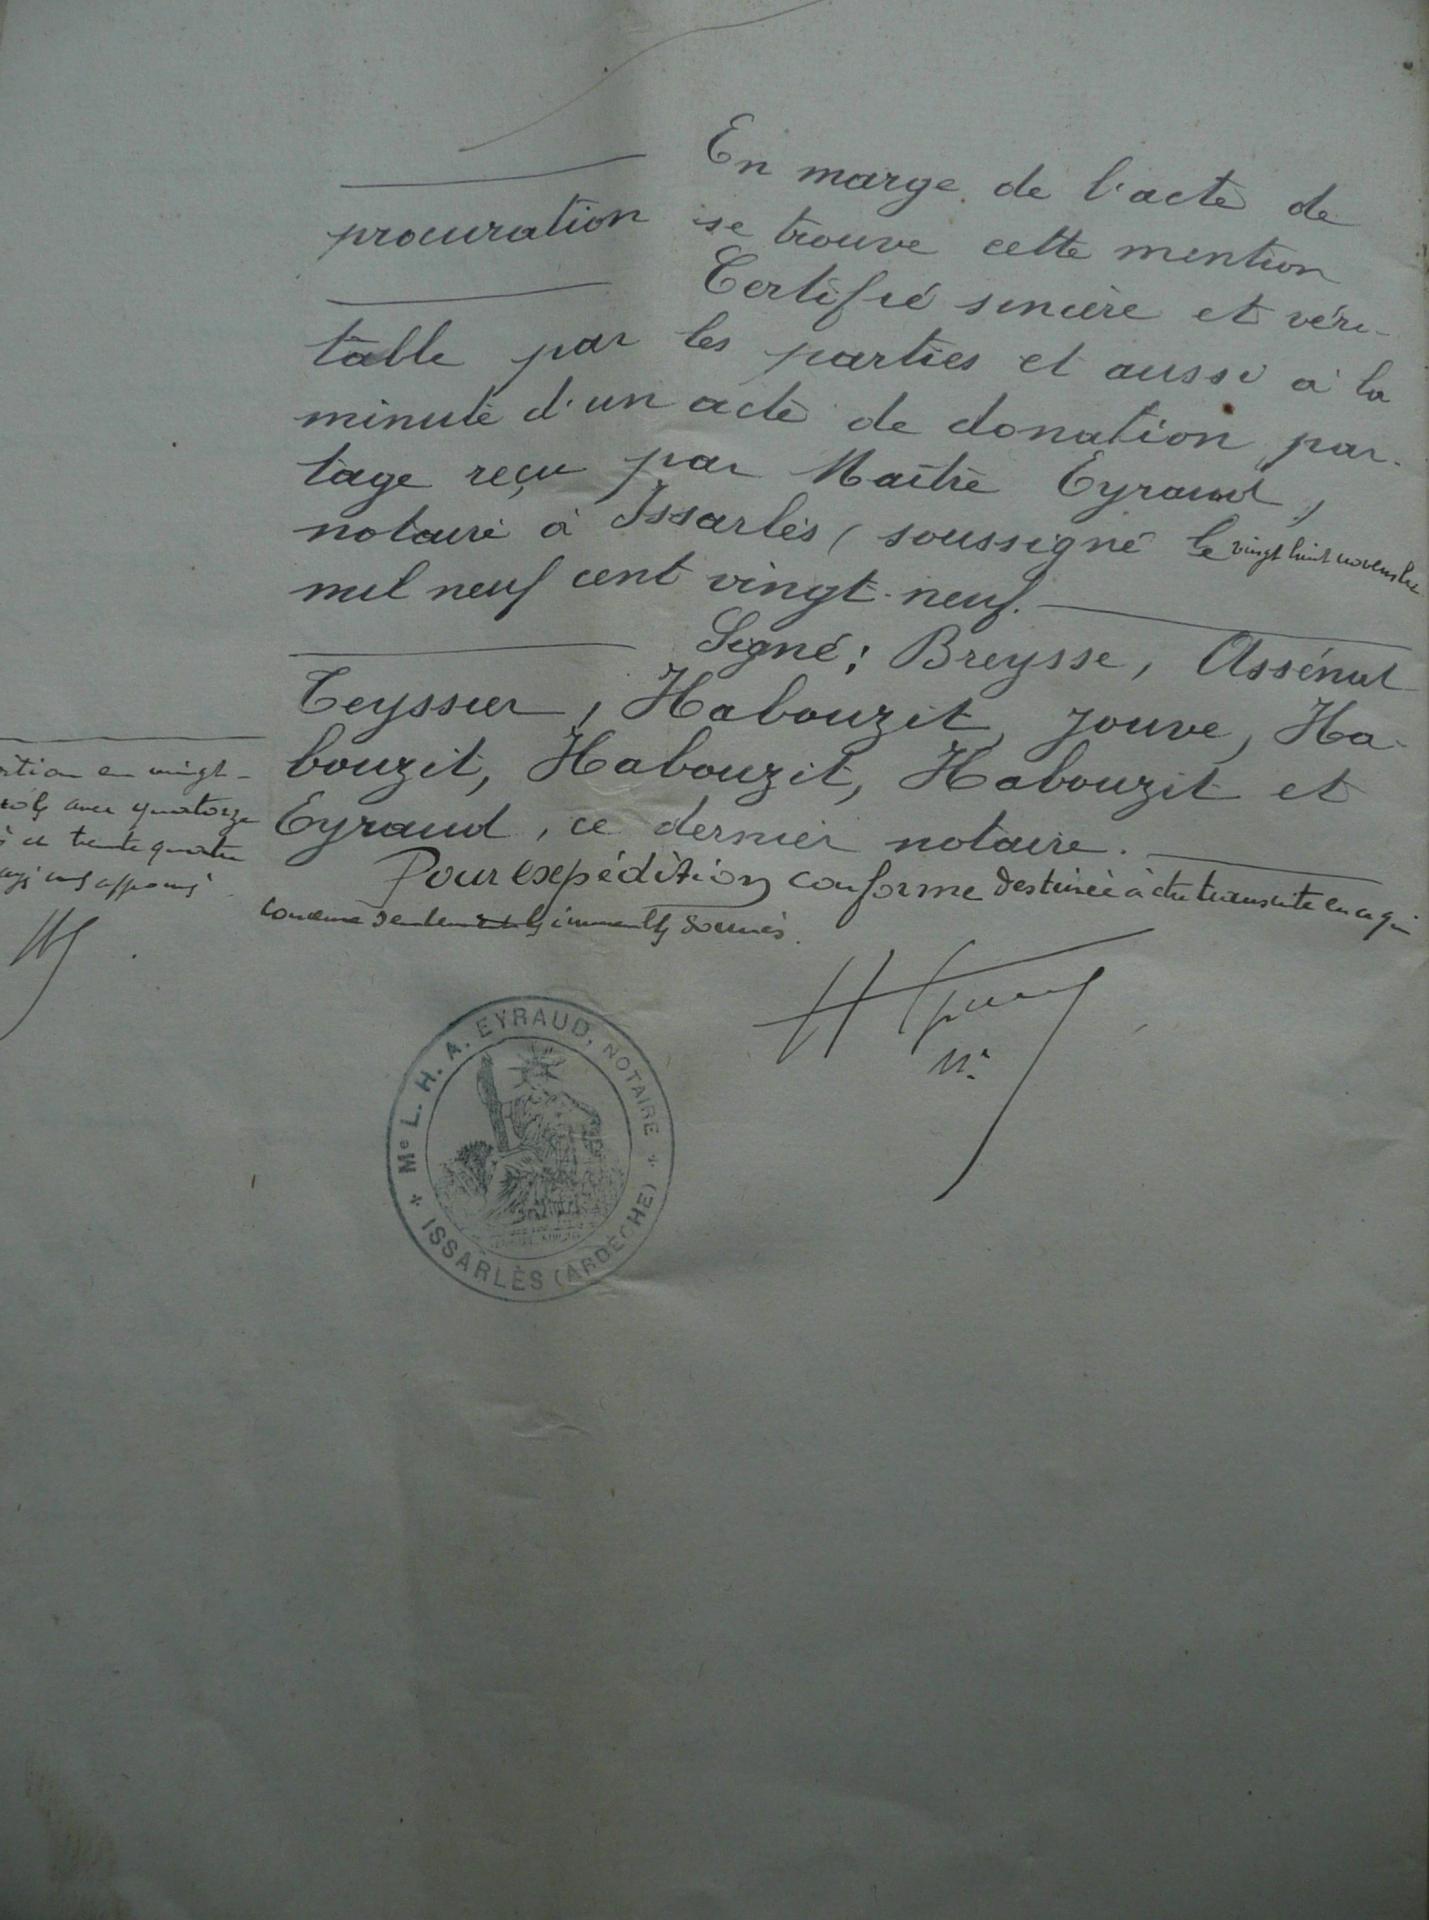 En marge de l'acte de
procuration se trouve cette mention
Certifié sincère et véri-
table par les parties et aussi à la
minute d'un acte de donation par-
tage reçu par Maître Eyraud,
notaire à Issarlès, soussigné le vingt huit novembre
mil neuf cent vingt-neuf.
Signé: Breysse, Assénat
Teyssier, Habouzit, Jouve, Ha-
bouzit, Habouzit, Habouzit et
Eyraud, ce dernier notaire.
Pour expédition conforme destinée à être transcrite en ce qui
concerne seulement immeubles donnés.
ition en vingt-
avec quatorze
trente quatre
Me L. H. A. EYRAUD, NOTAIRE
ISSARLÈS (ARDÈCHE)